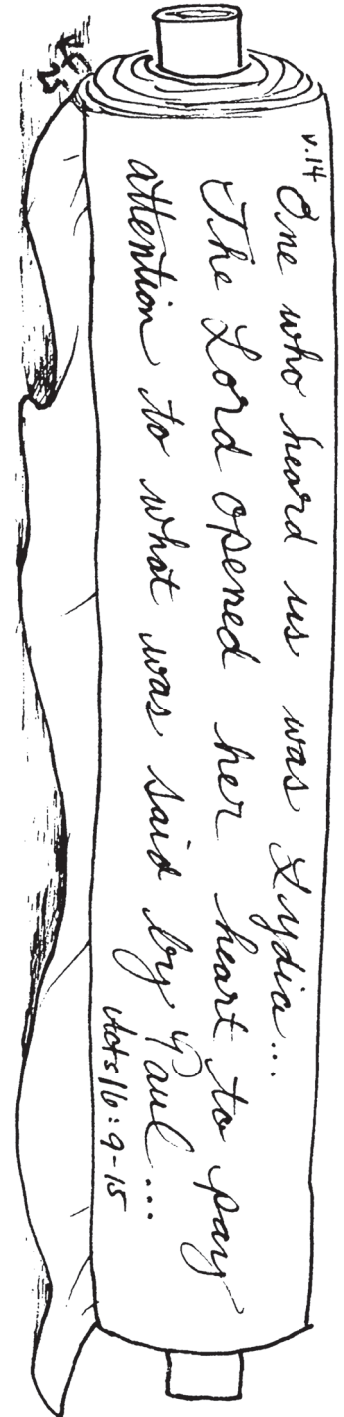 v.14 One who heard us was Lydia...
The Lord opened her heart to pay
attention to what was said by Paul...
Acts 16:9-15